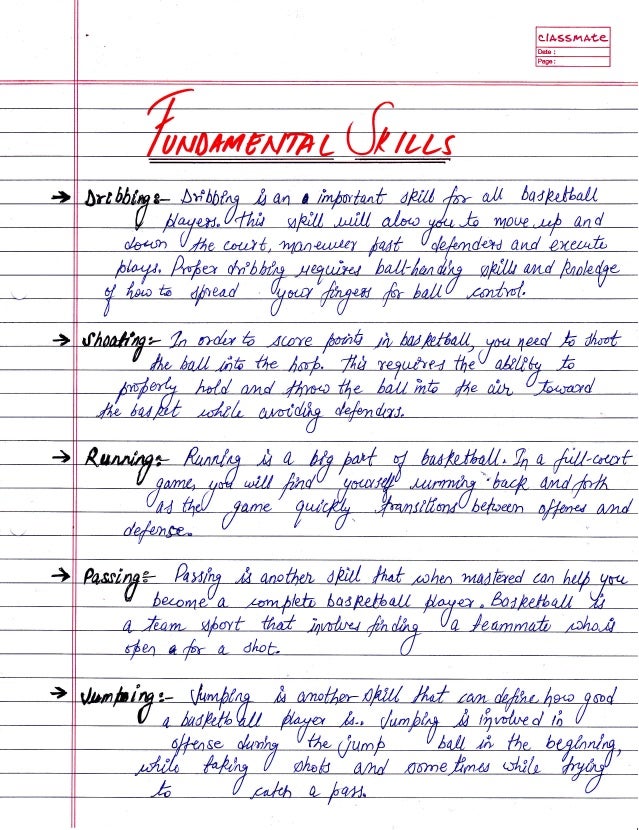 classmate
Date :
Page :
FUNDAMENTAL SKILLS
→ Dribbing :- Dribbing is an important skill for all basketball
players. This skill will alow you to move up and
down the court, maneuver past defenders and execute
plays. Proper dribbing requires ball-handing skills and knoledge
of how to spread your fingers for ball control.
→ Shoating :- In order to score points in basketball, you need to shoot
the ball into the hoop. This requires the ability to
properly hold and throw the ball into the air toward
the basket while avoiding defenders.
→ Running :- Running is a big part of basketball. In a full-court
game, you will find yourself running back and forth
as the game quickly transitions between offenes and
defense.
→ Passing :- Passing is another skill that when mastered can help you
become a complete basketball player. Basketball is
a team sport that involves finding a teammate who is
open for a shot.
→ Jumping :- Jumping is another skill that can define how good
a basketball player is.. Jumping is involved in
offense during the jump ball in the beginning,
while taking shots and some times while trying
to catch a pass.